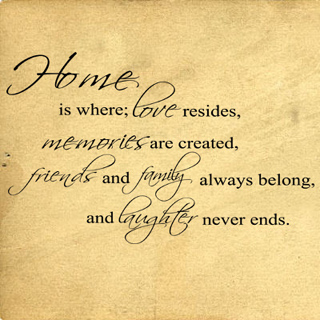 Home
is where; love resides,
memories are created,
friends and family always belong,
and laughter never ends.